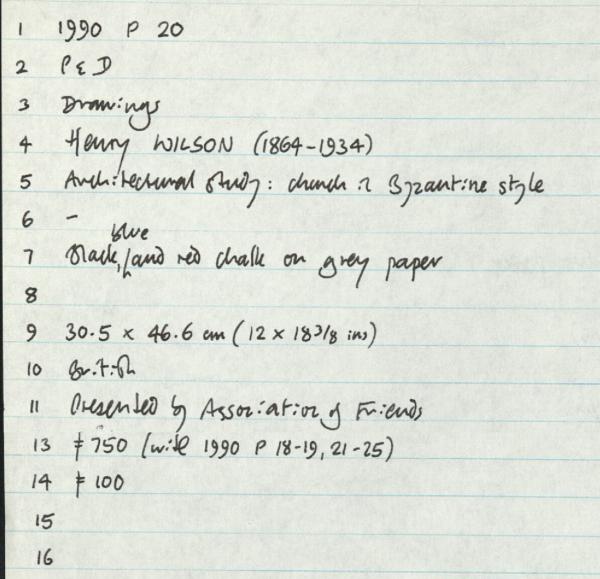 1 1990 P 20
2 P & D
3 Drawings
4 Henry WILSON (1864-1934)
5 Architectural study: church in Byzantine style
6 -
blue
7 Black, and red chalk on grey paper
8
9 30.5 x 46.6 cm (12 x 18 3/8 ins)
10 British
11 Presented by Association of Friends
13 £750 (with 1990 P 18-19, 21-25)
14 £100
15
16